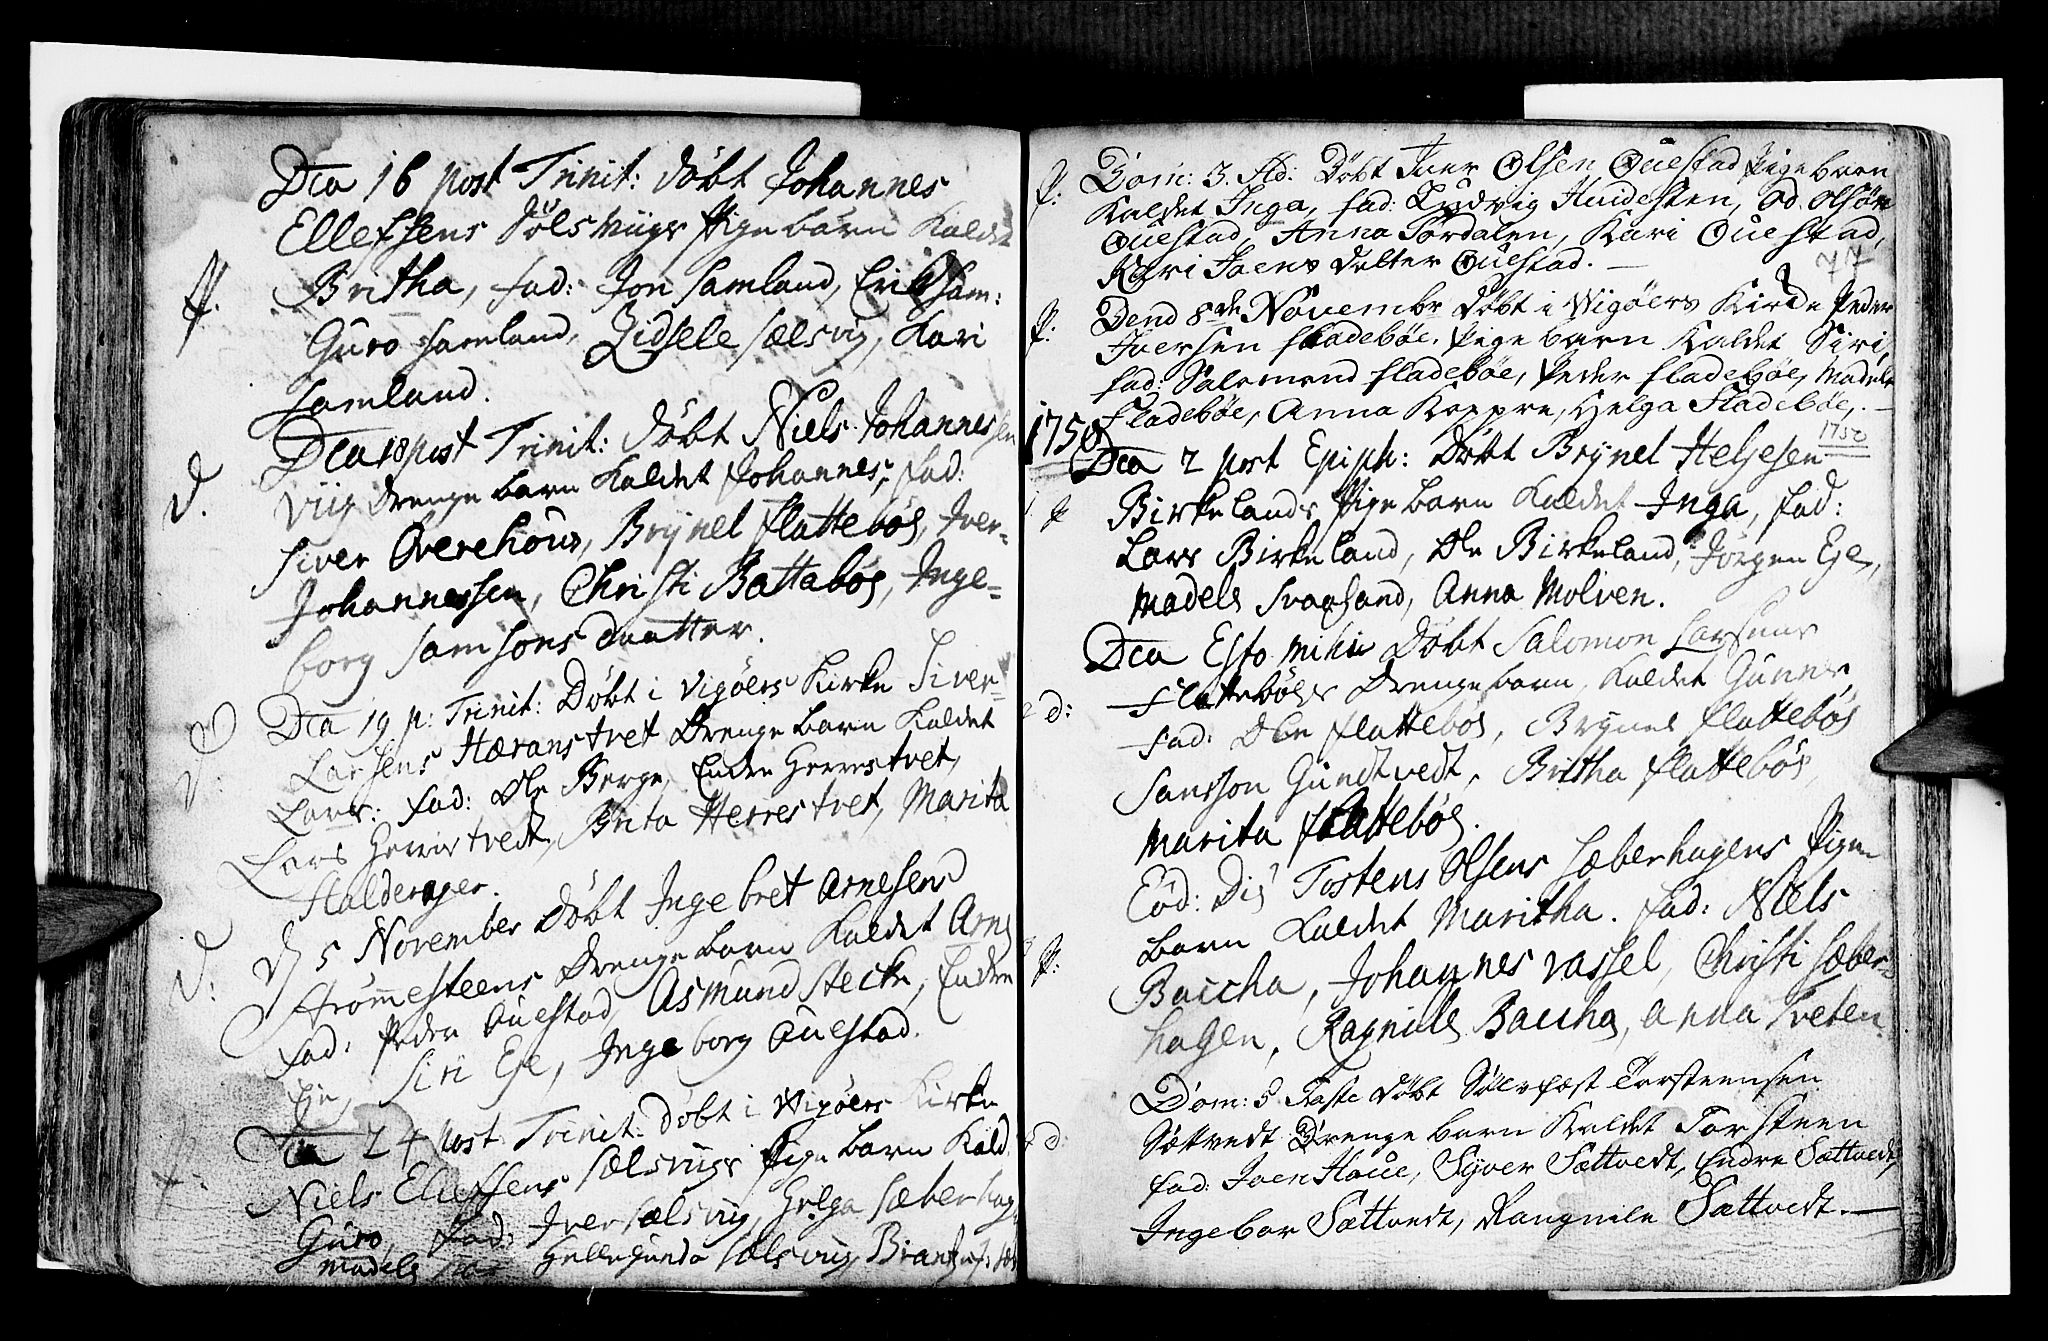 Dca 16 post Trinit: döbt Johannes
Ellefsens Sölsviigs Pigebarn Kaldet
P. Britha, fad: Jon Samland, Erik Sam:
Guro Samland, Zidsele Sælsvig, Kari
Samland.
Dca 18 post Trinit: döbt Niels Johannessen
D. Viig Drenge barn Kaldet Johannes, fad:
Siver Overehous, Brÿnel flattebög, Iver
Johannessen, Christi Battabög, Inge-
borg Samsons daatter.
Dca 19 p: Trinit: Döbt i Vigöers Kirke Siver
D: Larsens Hæranstvet Drenge barn Kaldet
Lars: fad: Ole Berge, Endre Herrestvet,
Lars Herristvedt, Brita Herrestvet, Marita
Halderager.
D: 5 November Döbt Ingebret Arnesen
Strömesteens Drenge barn Kaldet Arne
fad: Peder Ouestad, Asmund Stecke, Endre
Eie, Siri Ege, Ingeborg Ouestad.
Dca 24 post Trinit: döbt i Vigöers Kirke
P: Niels Elleffsens Sælsviigs Pige barn Kald
Guro, fad: Iver Sælsvig, Helga Sæberhag
Madele Hellegunda Sælsviig
P: Dom: 3. Ad: Döbt Iver Olsen Ouestad Pigebarn
Kaldet Inga, fad: Ludvig Huidesten, Od. Olsön
Ouestad, Anna Tordalen, Kari Ouestad,
Kari Joens dotter Ouestad. —
77
P: Dend 8de Novembr döbt i Vigöers Kirke Peder
Iversen fladeböe, Pige barn Kaldet Siri,
fad: Salomond fladeböe, Peder fladeböe, Madele
Fladeböe, Anna Koppre, Helga Fladeböe. —
1750
1750
Dca 2 post Epiph: Döbt Brÿnel Helgesen
1 P Birkelands Pige barn Kaldet Inga, fad:
Lars Birkeland, Ole Birkeland, Jörgen Ege,
Madele Svaasand, Anna Molven.
Dca Esto mihi Döbt Salomon Larsens
2 D: Flattebögs Drenge barn, Kaldet Gunne
fad: Ole flattebög, Brÿnel flattebög
Samsson Gundtvedt, Britha flattebög,
Marita flattebög.
Eod: Die Tostens Olsens Sæberhagens Pige
barn Kaldet Maritha. fad: Niels
P: Baccha, Johannes Vassel, Christi Sæber-
hagen, Ragnile Baccha, Anna Tveten
Dom: 5 Faste döbt Sölvfast Torsteensen
D: Sættvedt Drenge barn Kaldet Torsteen
fad: Joen Haue, Syver Sættvedt, Endre Sættvedt,
Ingebor Sættvedt, Rangnile Sættvedt. —